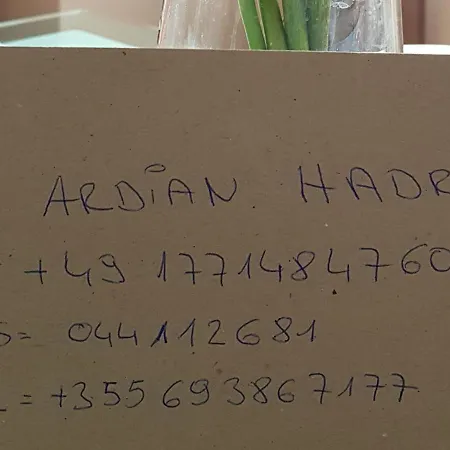 ARDIAN. HADR
+49 1771484760
S= 044112681
= +355693867177